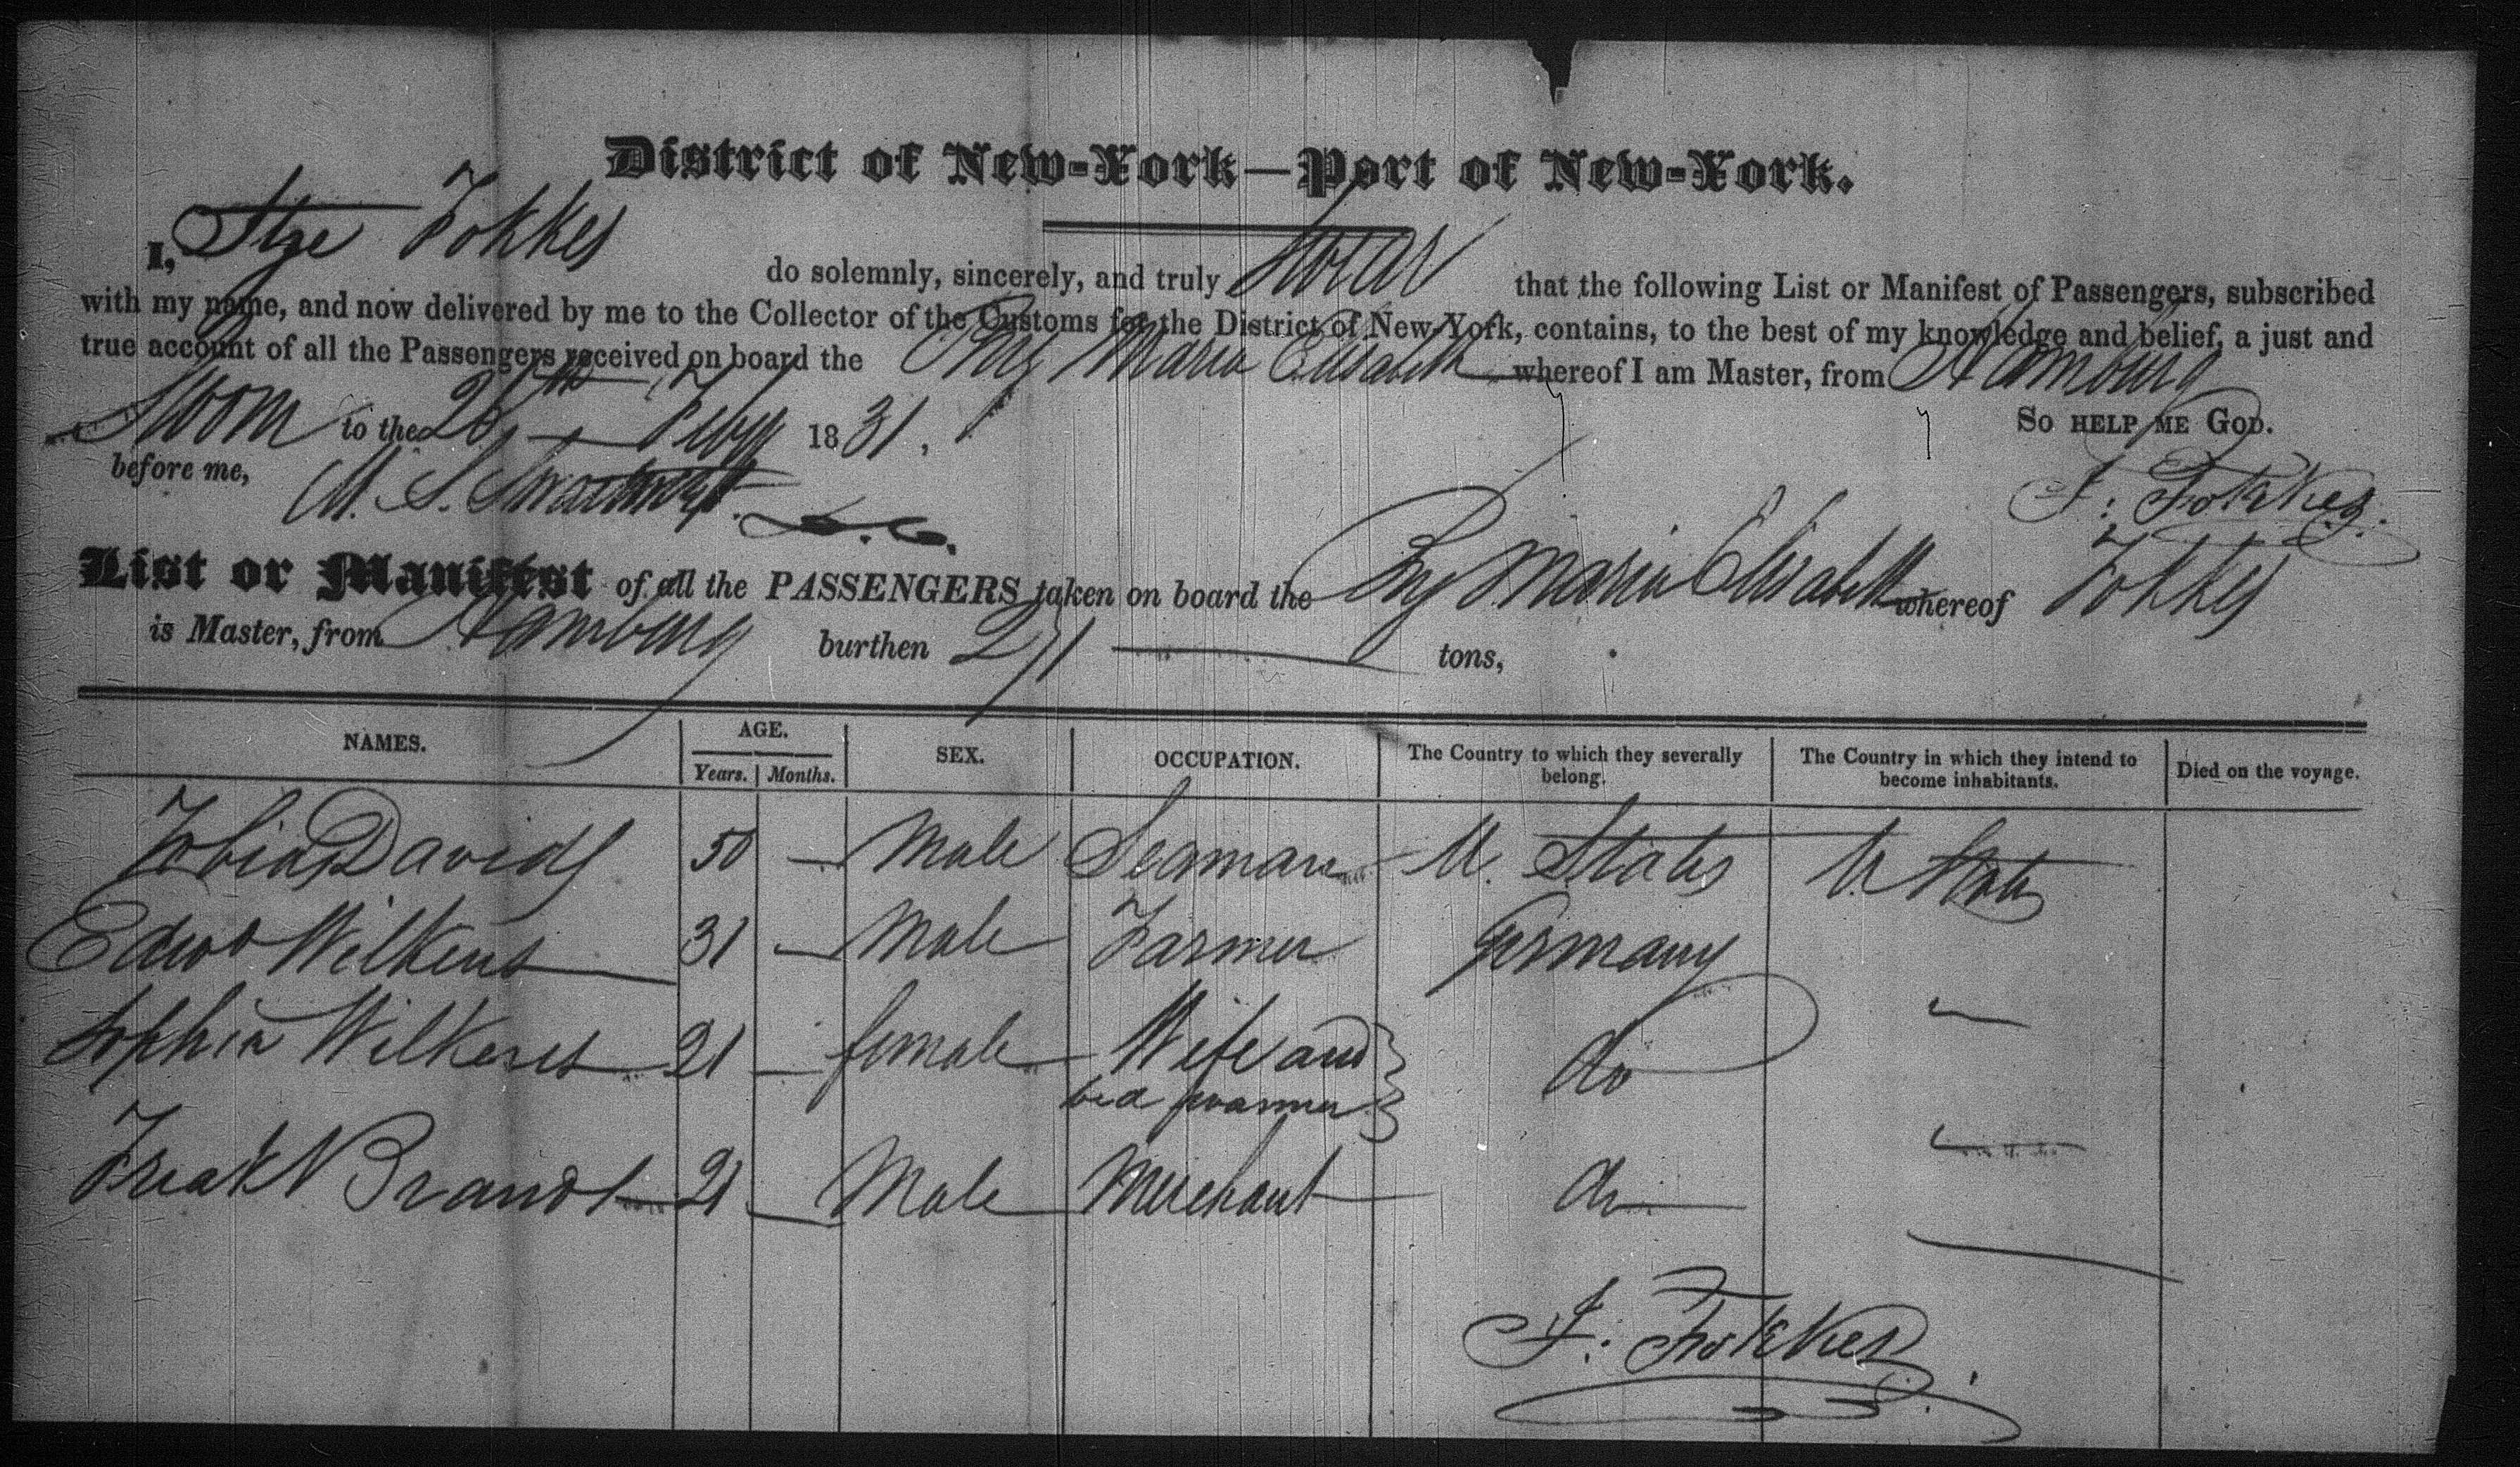 District of New-York—Port of New-York.
I, Itze Fokkes do solemnly, sincerely, and truly swear that the following List or Manifest of Passengers, subscribed
with my name, and now delivered by me to the Collector of the Customs for the District of New York, contains, to the best of my knowledge and belief, a just and
true account of all the Passengers received on board the Brig Maria Elisabeth whereof I am Master, from Hamburg
Sworn to the 26th Feby 1831,
So HELP ME GOD.
before me, M. S. Swartwout. D.C.
I: Fokkes.
List or Manifest of all the PASSENGERS taken on board the Brig Maria Elisabeth whereof Fokkes
is Master, from Hamburg burthen 271 tons,
NAMES. AGE. SEX. OCCUPATION. The Country to which they severally belong. The Country in which they intend to become inhabitants. Died on the voyage.
Years. Months.
Tobias Davids 50 — Male Seaman U. States U States
Edwd Wilkens 31 — Male Farmer Germany
Sophia Wilkens 21 — female Wife and do —
Fredk Brandt 21 — Male Merchant do —
I: Fokkes.